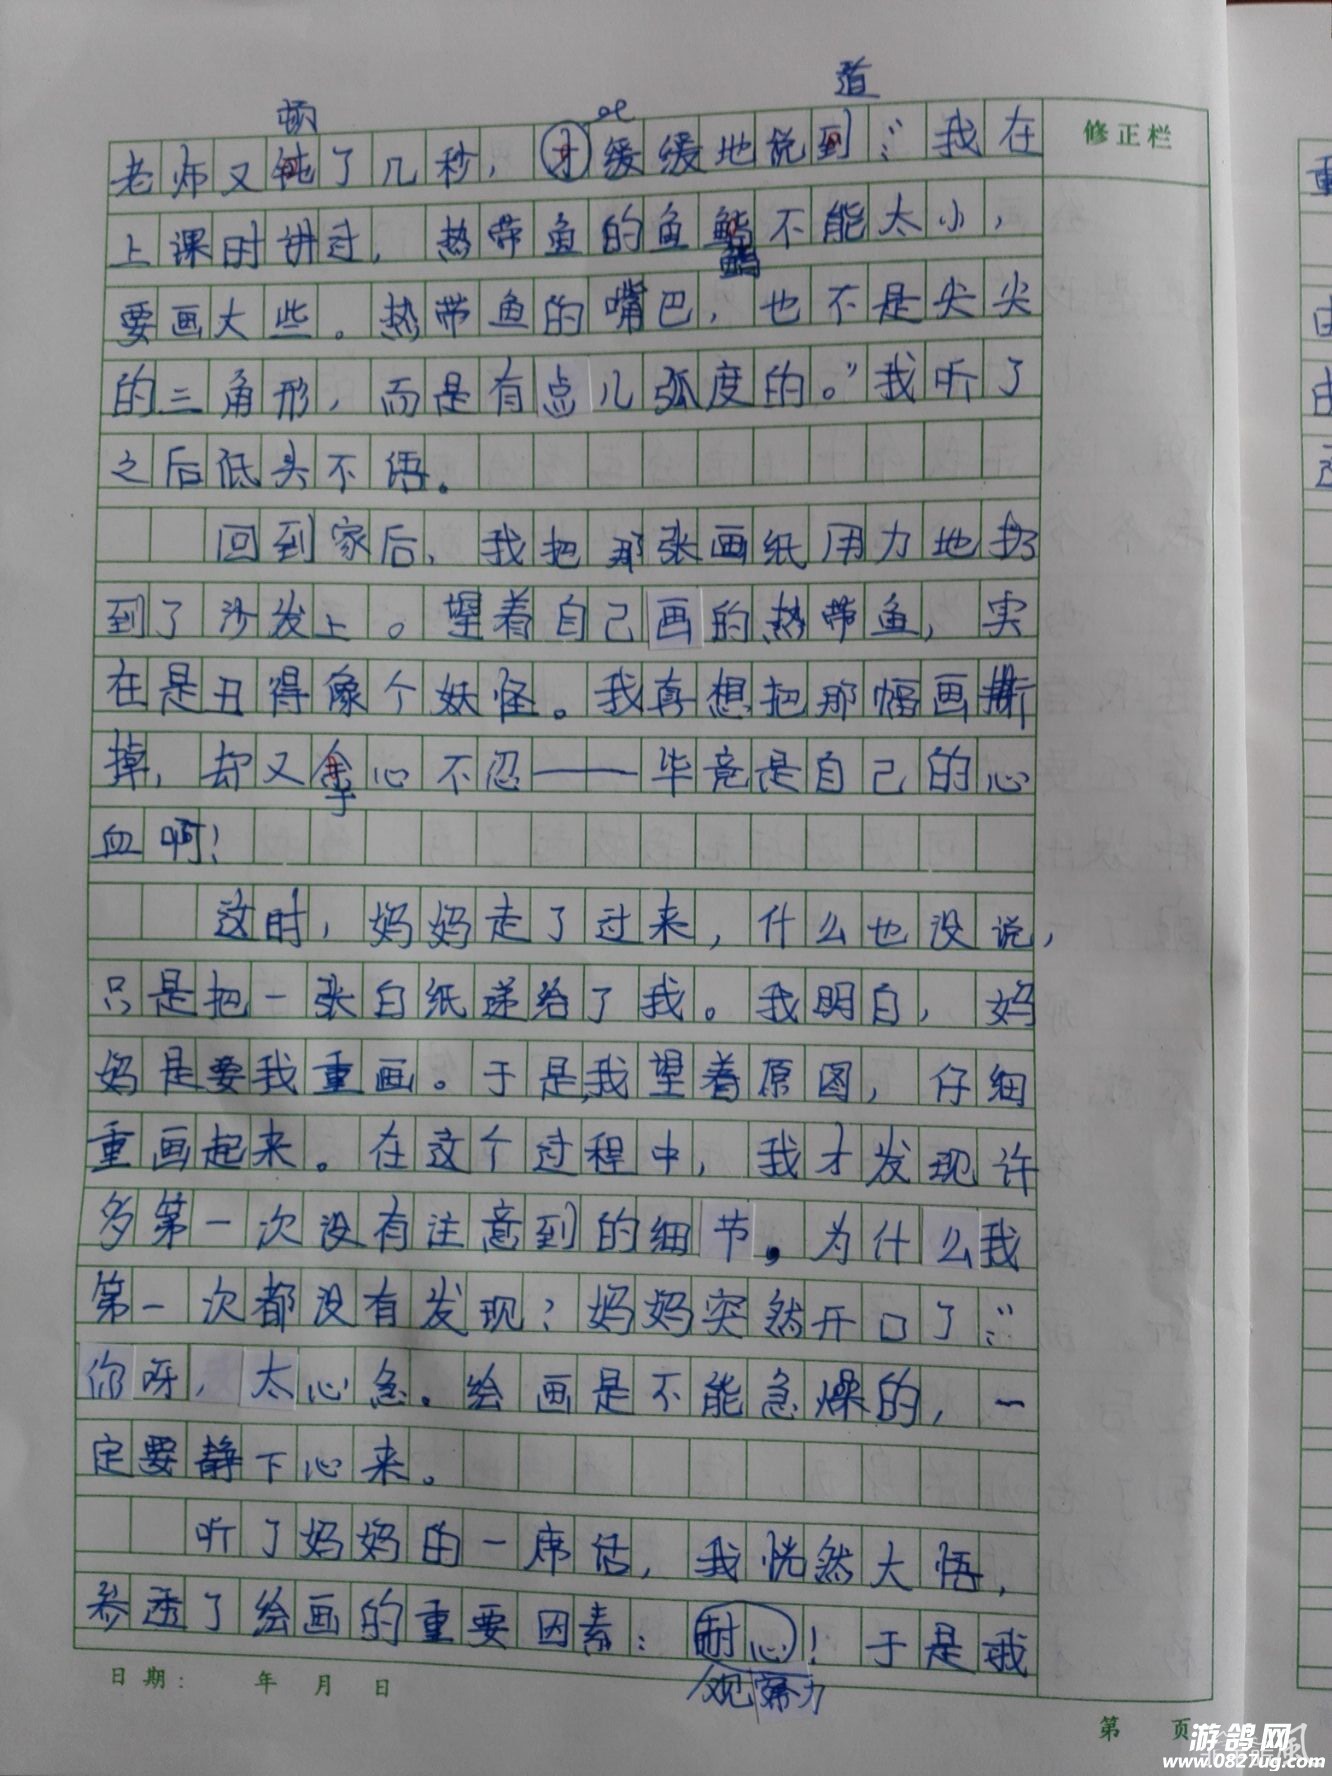 顿 道
老师又钝了几秒，才缓缓地说到："我在
修正栏
上课时讲过，热带鱼的鱼鳍不能太小，
鳍
要画大些。热带鱼的嘴巴，也不是尖尖
的三角形，而是有点儿弧度的。"我听了
之后低头不语。
回到家后，我把那张画纸用力地扔
到了沙发上。望着自己画的热带鱼，实
在是丑得像个妖怪。我真想把那幅画撕
掉，却又心不忍——毕竟是自己的心
血啊！
这时，妈妈走了过来，什么也没说，
只是把一张白纸递给了我。我明白，妈
妈是要我重画。于是，我望着原图，仔细
重画起来。在这个过程中，我才发现许
多第一次没有注意到的细节。为什么我
第一次都没有发现？妈妈突然开口了："
你呀，太心急。绘画是不能急燥的，一
定要静下心来。
听了妈妈的一席话，我恍然大悟，
参透了绘画的重要因素：耐心！于是我
观察力
日期： 年 月 日
第 页
游鸽网
www.0827ug.com